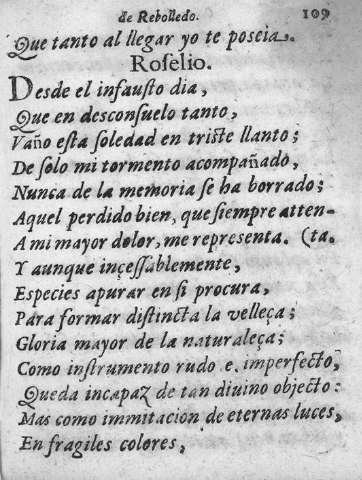 de Rebolledo. 109
Que tanto al llegar yo te poseia.
Roſelio.
Desde el infausto dia,
Que en desconſuelo tanto,
Vaño eſta ſoledad en triſte llanto;
De ſolo mi tormento acompañado,
Nunca de la memoria ſe ha borrado;
Aquel perdido bien, que ſiempre atten-
A mi mayor dolor, me representa. (ta.
Y aunque inçeſſablemente,
Especies apurar en ſi procura,
Para formar diſtincta la velleça;
Gloria mayor de la naturaleça;
Como inſtrumento rudo e imperfecto,
Queda incapaz de tan diuino objecto:
Mas como immitacion de eternas luces,
En fragiles colores,